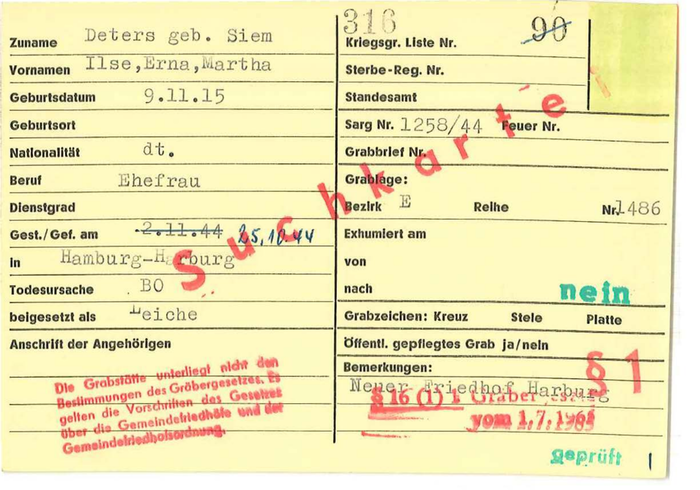 Zuname Deters geb. Siem
Vornamen Ilse,Erna,Martha
Geburtsdatum 9.11.15
Geburtsort
Nationalität dt.
Beruf Ehefrau
Dienstgrad
Gest./Gef. am 2.11.44 25.10.44
in Hamburg-Harburg
Todesursache BO
beigesetzt als Leiche
Anschrift der Angehörigen
Die Grabstätte unterliegt nicht den
Bestimmungen des Gräbergesetzes. Es
gelten die Vorschriften des Gesetzes
über die Gemeindefriedhöfe und der
Gemeindefriedhofsordnung.
Suchkarte
316 90
Kriegsgr. Liste Nr.
Sterbe-Reg. Nr.
Standesamt
Sarg Nr. 1258/44 Feuer Nr.
Grabbrief Nr.
Grablage:
Bezirk E Reihe Nr. 1486
Exhumiert am
von
nach nein
Grabzeichen: Kreuz Stele Platte
Öffentl. gepflegtes Grab ja/nein
Bemerkungen: § 1
Neuer Friedhof Harburg
§ 16 (1) 1
vom 1.7.
geprüft 1